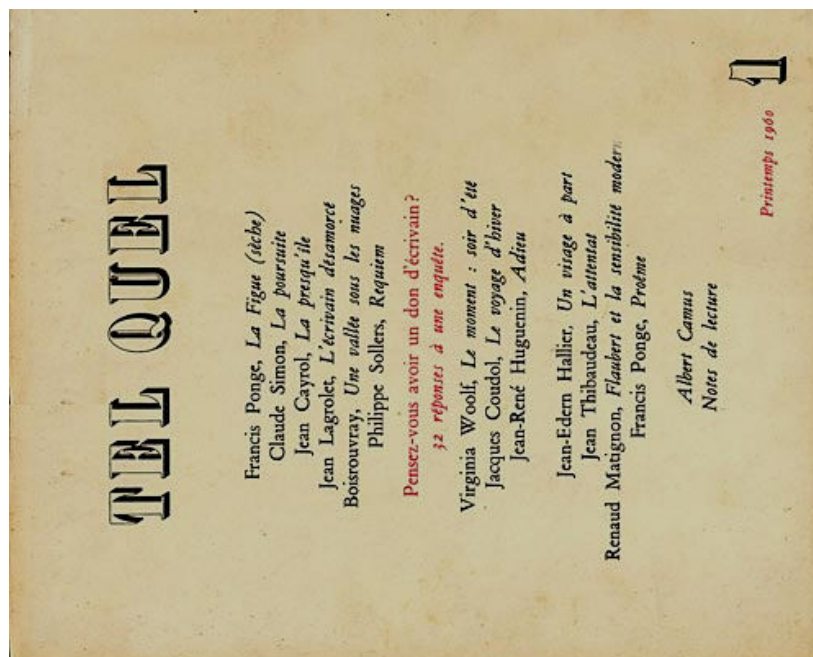 TEL QUEL
Francis Ponge, La Figue (sèche)
Claude Simon, La poursuite
Jean Cayrol, La presqu'île
Jean Lagrolet, L'écrivain désamorcé
Boisrouvray, Une vallée sous les nuages
Philippe Sollers, Requiem
Pensez-vous avoir un don d'écrivain?
32 réponses à une enquête.
Virginia Woolf, Le moment : soir d'été
Jacques Coudol, Le voyage d'hiver
Jean-René Huguenin, Adieu
Jean-Edern Hallier, Un visage à part
Jean Thibaudeau, L'attentat
Renaud Matignon, Flaubert et la sensibilité modern
Francis Ponge, Proême
Albert Camus
Notes de lecture
Printemps 1960
1